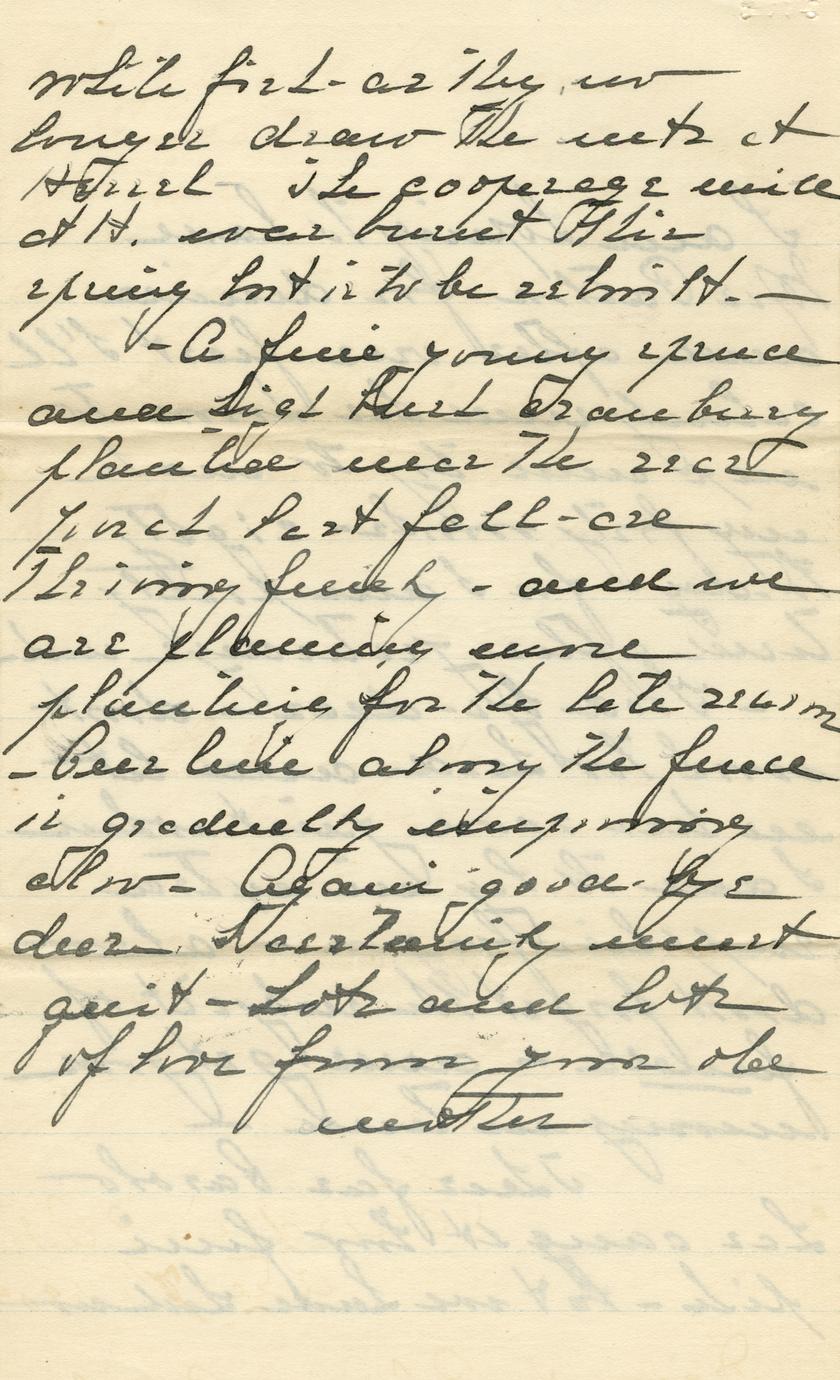 white fish - as they no
longer draw the nets at
Hessel The cooperage mill
at H. was burnt this
spring but is to be rebuilt. —
- A fine young spruce
and high bush cranbury
planted near the rear
porch last fall - are
thriving finely - and we
are planning more
planting for the late season
- Our line along the fence
is gradually improving
also - Again good-bye
dear I certainly must
quit - Lots and lots
of love from your old
mother